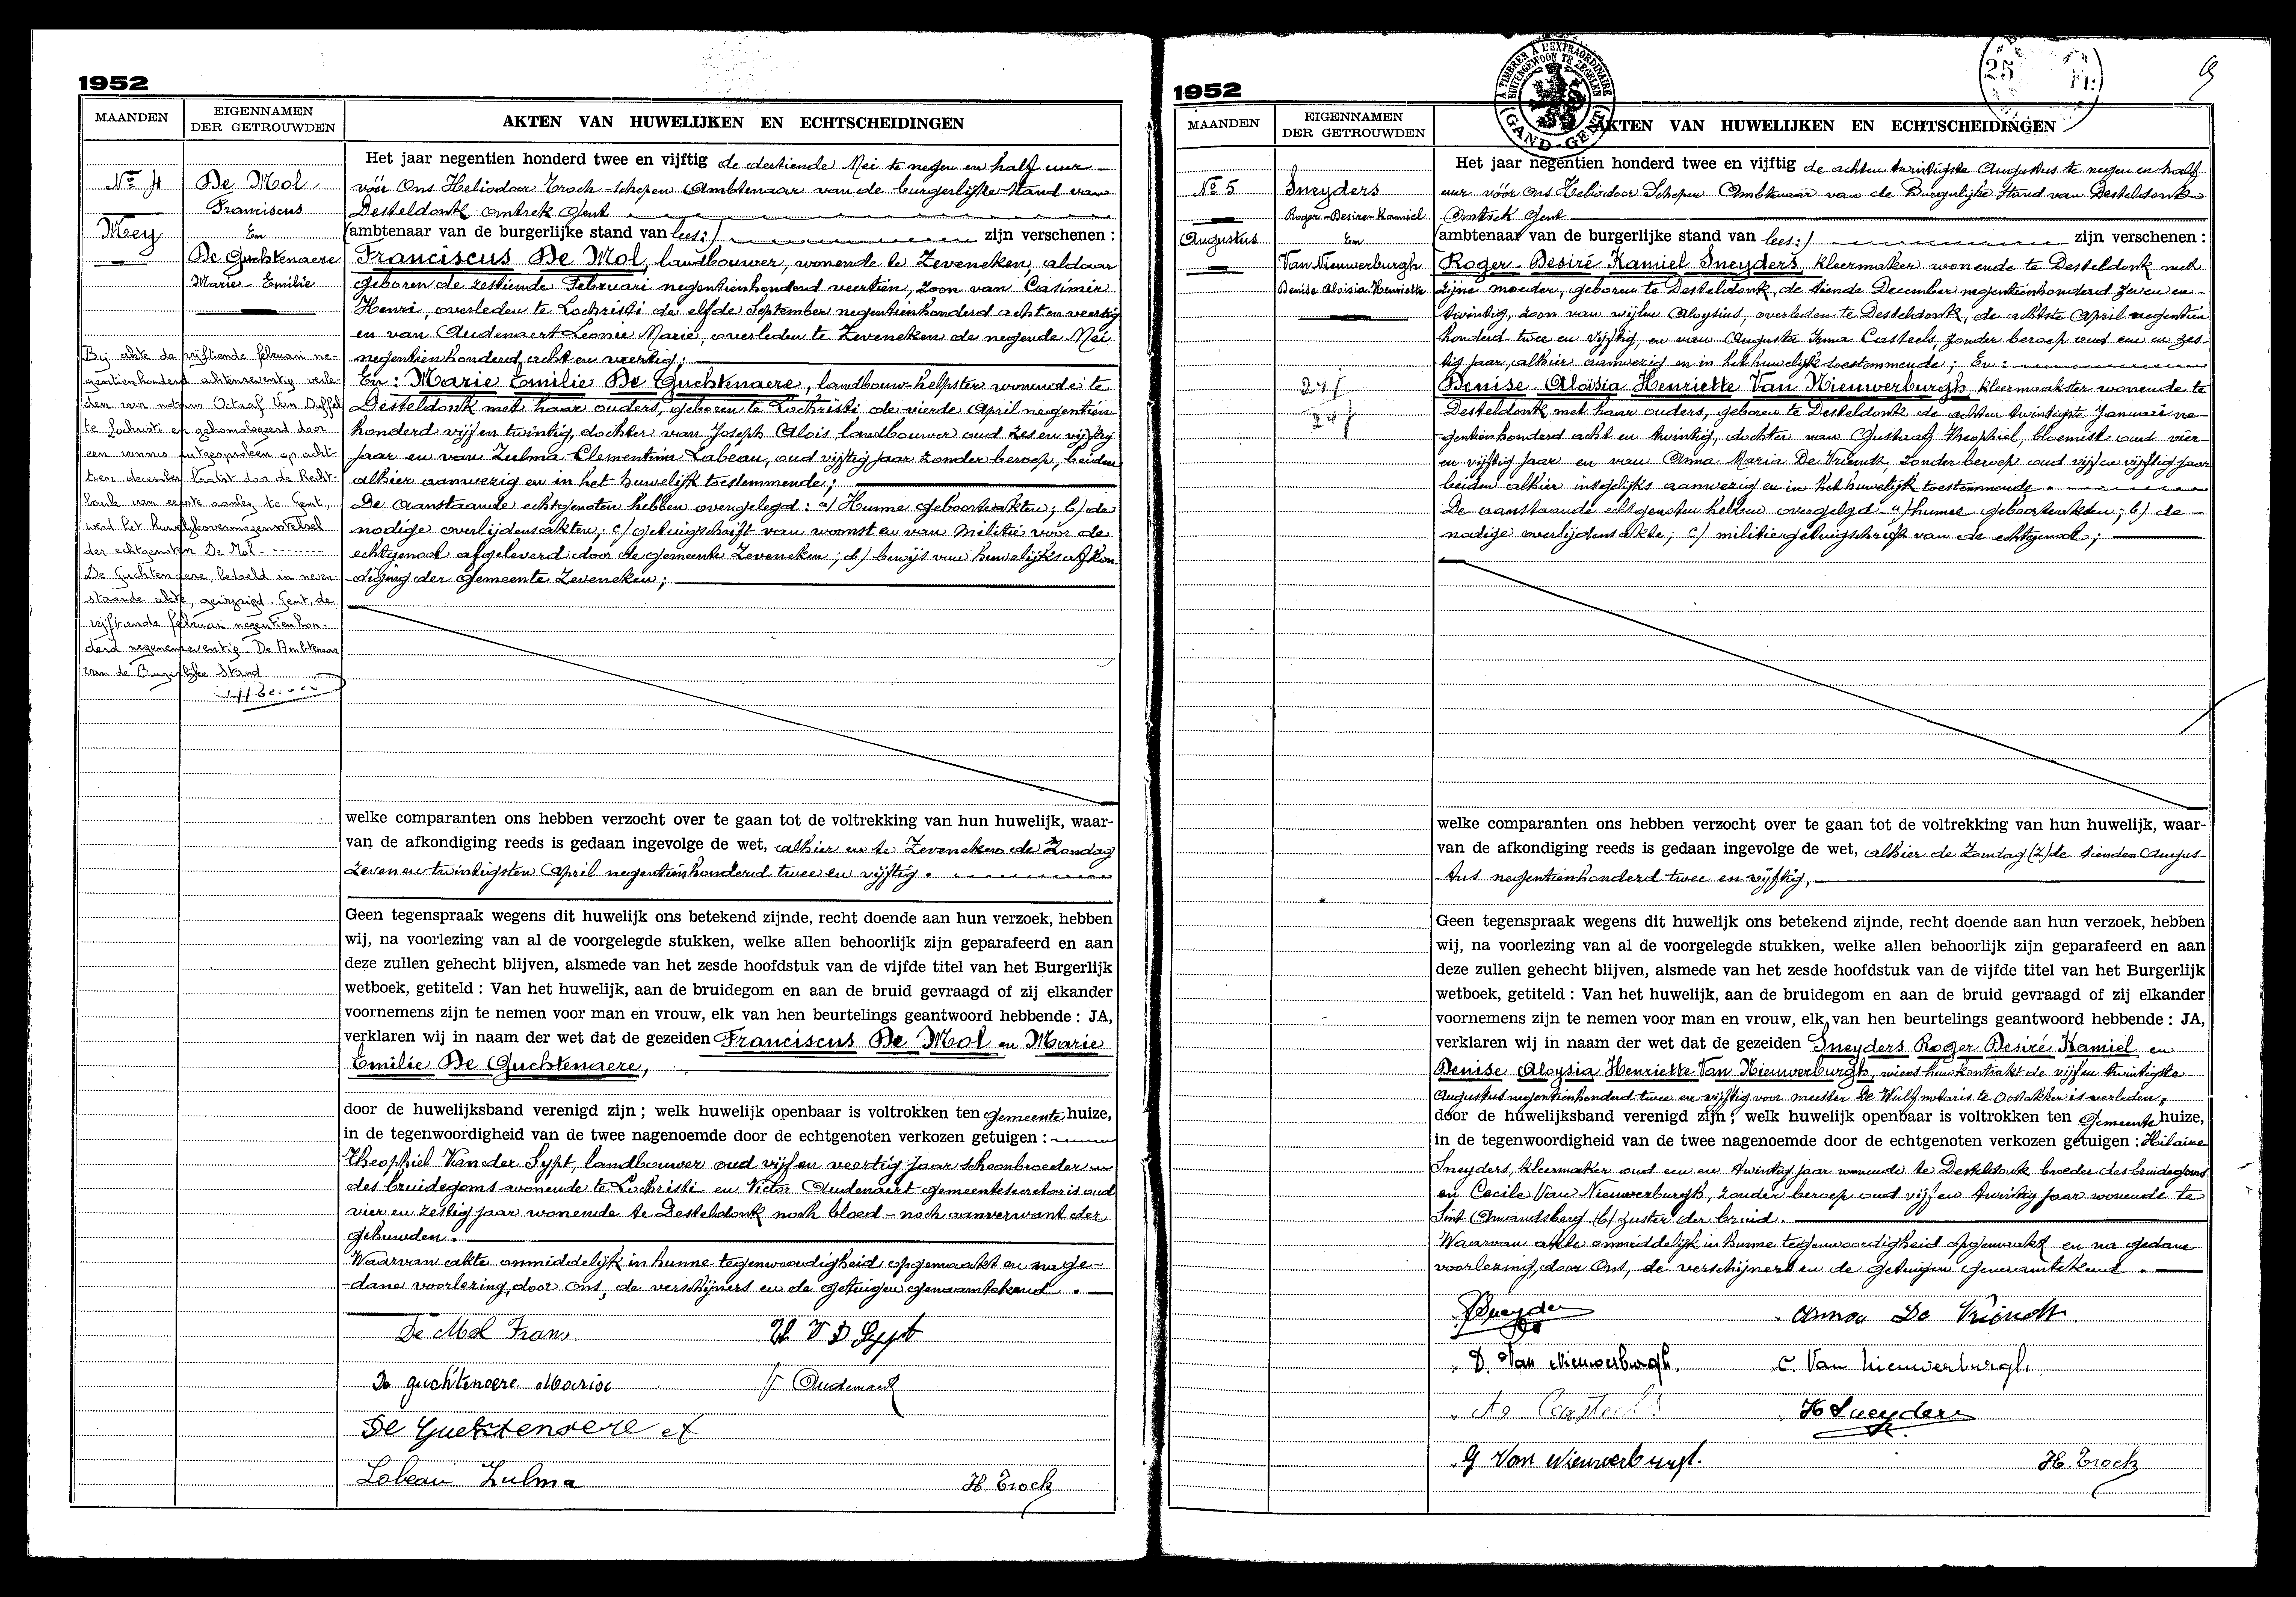 1952
MAANDEN
EIGENNAMEN
DER GETROUWDEN
AKTEN VAN HUWELIJKEN EN ECHTSCHEIDINGEN
No 4
Mey
De Mol
Franciscus
En
De Guchtenaere
Marie - Emilie
Bij akte de vijftiende februari ne-
gentienhonderd achtenzeventig verle-
den voor notaris Octaaf Van Duffel
te Lochristi en gehomologeerd door
een vonnis uitgesproken op acht-
tien december laatst door de Recht-
bank van eerste aanleg te Gent,
werd het huwelijksvermogensstelsel
der echtgenoten De Mol - - - - -
De Guchtenaere, bedoeld in neven-
staande akte, gewijzigd. Gent, de
vijftiende februari negentienhon-
derd negenenzeventig. De Ambtenaar
van de Burgerlijke Stand
Het jaar negentien honderd twee en vijftig de dertiende Mei te negen en half uur -
vóór Ons Heliodoor Trock Schepen Ambtenaar van de burgerlijke stand van
Desteldonk omtrek Gent
(ambtenaar van de burgerlijke stand van lees:) zijn verschenen :
Franciscus De Mol, landbouwer, wonende te Zeveneken, aldaar
geboren de zestiende Februari negentienhonderd veertien, zoon van Casimir
Henri, overleden te Lochristi de elfde September negentienhonderd acht en veertig
en van Audenaert Leonie Marie, overleden te Zeveneken de negende Mei
negentienhonderd acht en veertig;
En: Marie Emilie De Guchtenaere, landbouw-helpster wonende te
Desteldonk met haar ouders, geboren te Lochristi de vierde April negentien
honderd vijf en twintig, dochter van Joseph Alois, landbouwer oud zes en vijftig
jaar en van Zulma Clementina Labeau, oud vijftig jaar zonder beroep, beiden
alhier aanwezig en in het huwelijk toestemmende;
De aanstaande echtgenoten hebben overgelegd: a/ Hunne geboorteakten; b/ de
nodige overlijdensakten; c/ getuigschrift van woonst en van militie voor de
echtgenoot afgeleverd door de gemeente Zeveneken; d/ bewijs van huwelijksafkon-
diging der gemeente Zeveneken;
welke comparanten ons hebben verzocht over te gaan tot de voltrekking van hun huwelijk, waar-
van de afkondiging reeds is gedaan ingevolge de wet, alhier en te Zeveneken de Zondag
zeven en twintigsten April negentienhonderd twee en vijftig.
Geen tegenspraak wegens dit huwelijk ons betekend zijnde, recht doende aan hun verzoek, hebben
wij, na voorlezing van al de voorgelegde stukken, welke allen behoorlijk zijn geparafeerd en aan
deze zullen gehecht blijven, alsmede van het zesde hoofdstuk van de vijfde titel van het Burgerlijk
wetboek, getiteld : Van het huwelijk, aan de bruidegom en aan de bruid gevraagd of zij elkander
voornemens zijn te nemen voor man en vrouw, elk van hen beurtelings geantwoord hebbende : JA,
verklaren wij in naam der wet dat de gezeiden Franciscus De Mol en Marie
Emilie De Guchtenaere,
door de huwelijksband verenigd zijn ; welk huwelijk openbaar is voltrokken ten Gemeente huize,
in de tegenwoordigheid van de twee nagenoemde door de echtgenoten verkozen getuigen :
Theophiel Van der Sypt, landbouwer oud vijf en veertig jaar schoonbroeder
des bruidegoms wonende te Lochristi en Victor Audenaert gemeentesecretaris oud
vier en zestig jaar wonende te Desteldonk noch bloed - noch aanverwant der
gehuwden.
Waarvan akte onmiddelijk in hunne tegenwoordigheid opgemaakt en na ge-
dane voorlezing, door ons, de verschijners en de getuigen genaamtekend.
De Mol Frans
De guchtenaere Maria
V. Audenaert
De Guchtenaere
Labeau Zulma
H. Trock
1952
À TIMBRER À L'EXTRAORDINAIRE
BUITENGEWOON TE ZEGELEN
GAND-GENT
25
9
MAANDEN
EIGENNAMEN
DER GETROUWDEN
AKTEN VAN HUWELIJKEN EN ECHTSCHEIDINGEN
No 5
Augustus
Sneyders
Roger - Desiré - Kamiel
En
Van Nieuwerburgh
Denise Aloisia Henriette
Het jaar negentien honderd twee en vijftig de achten twintigste Augustus te negen en half
uur vóór Ons Heliodoor Schepen Ambtenaar van de Burgerlijke Stand van Desteldonk
Omtrek Gent
(ambtenaar van de burgerlijke stand van lees:) zijn verschenen :
Roger - Desiré Kamiel Sneyders, kleermaker wonende te Desteldonk met
zijne moeder, geboren te Desteldonk, de tiende December negentienhonderd zeven en -
twintig, zoon van wijlen Aloysius, overleden te Desteldonk, de achtste April negentien
honderd twee en vijftig, en van Augusta Irma Casteels, zonder beroep oud een en zes-
tig jaar, alhier aanwezig en in het huwelijk toestemmende; En:
Denise Aloïsia Henriette Van Nieuwerburgh, kleermaakster wonende te
Desteldonk met haar ouders, geboren te Desteldonk de achten twintigste Januari ne-
gentienhonderd acht en twintig, dochter van Gustaaf Theophiel, bloemist oud vier-
en vijftig jaar en van Anna Maria De Vriendt, zonder beroep oud vijf en vijftig jaar
beiden alhier insgelijks aanwezig en in het huwelijk toestemmende.
De aanstaande echtgenoten hebben overgelegd: a/ hunne geboorteakten; b/ de -
nodige overlijdensakte; c/ militiegetuigschrift van de echtgenoot;
welke comparanten ons hebben verzocht over te gaan tot de voltrekking van hun huwelijk, waar-
van de afkondiging reeds is gedaan ingevolge de wet, alhier de Zondag (Z) de tienden Augus-
tus negentienhonderd twee en vijftig,
Geen tegenspraak wegens dit huwelijk ons betekend zijnde, recht doende aan hun verzoek, hebben
wij, na voorlezing van al de voorgelegde stukken, welke allen behoorlijk zijn geparafeerd en aan
deze zullen gehecht blijven, alsmede van het zesde hoofdstuk van de vijfde titel van het Burgerlijk
wetboek, getiteld : Van het huwelijk, aan de bruidegom en aan de bruid gevraagd of zij elkander
voornemens zijn te nemen voor man en vrouw, elk van hen beurtelings geantwoord hebbende : JA,
verklaren wij in naam der wet dat de gezeiden Sneyders Roger Desiré Kamiel en
Denise Aloysia Henriette Van Nieuwerburgh, wiens huwkontrakt de vijf en twintigste
Augustus negentienhonderd twee en vijftig voor meester De Wulf notaris te Oostakker is verleden,
door de huwelijksband verenigd zijn ; welk huwelijk openbaar is voltrokken ten Gemeente huize,
in de tegenwoordigheid van de twee nagenoemde door de echtgenoten verkozen getuigen : Hilaire
Sneyders, kleermaker oud een en twintig jaar wonende te Desteldonk broeder des bruidegoms
en Cecile Van Nieuwerburgh, zonder beroep oud vijf en twintig jaar wonende te
Sint Amandsberg zuster der bruid.
Waarvan akte onmiddelijk in hunne tegenwoordigheid opgemaakt en na gedane
voorlezing, door Ons, de verschijners en de getuigen genaamtekend.
Anna De Vriendt
D. Van Nieuwerburgh.
C. Van Nieuwerburgh.
H Sneyders
G Van Nieuwerburgh.
H. Trock